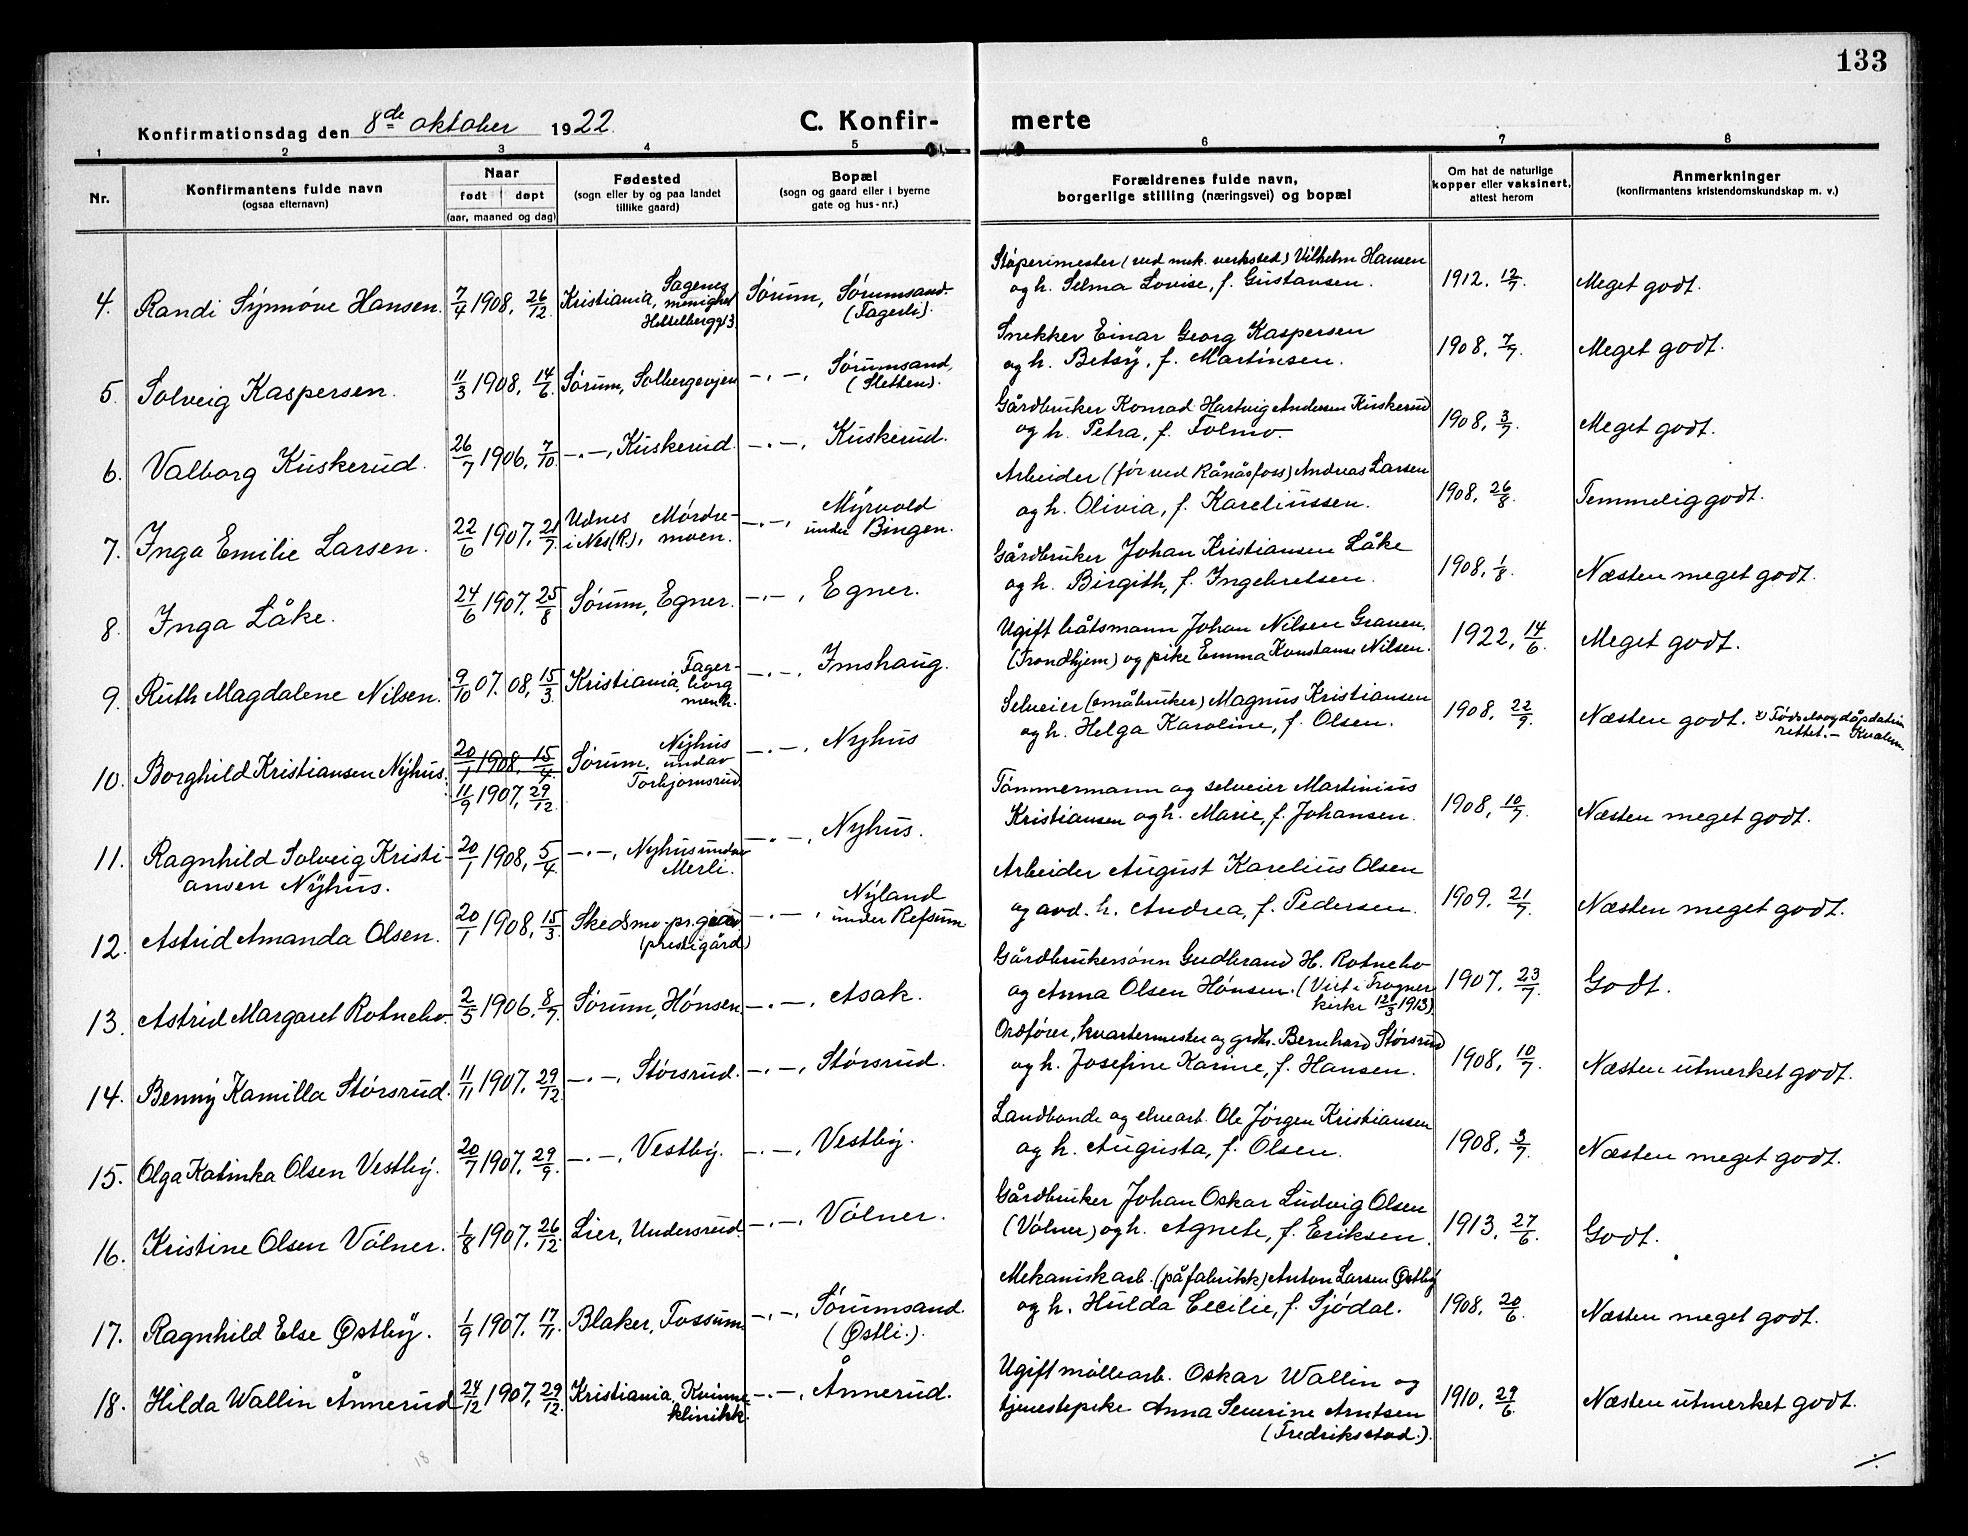 133
Konfirmationsdag den 8de oktober 1922.
C. Konfir-
merte
1 2 3 4 5 6 7 8
Nr.
Konfirmantens fulde navn
(ogsaa efternavn)
Naar
født døpt
(aar, maaned og dag)
Fødested
(sogn eller by og paa landet
tillike gaard)
Bopæl
(sogn og gaard eller i byerne
gate og hus-nr.)
Forældrenes fulde navn,
borgerlige stilling (næringsvei) og bopæl
Om hat de naturlige
kopper eller vaksinert,
attest herom
Anmerkninger
(konfirmantens kristendomskundskap m. v.)
4. Randi Synnøve Hansen. 7/4 1908, 26/12 Kristiania, Sagenes
menighet
Sørum, Sørumsand.
(Fagerli).
Støperimester (ved mek. verksted) Vilhelm Hansen
og h. Selma Lovise, f. Gustansen.
1912. 12/7. Meget godt.
5. Solveig Kaspersen. 11/3 1908, 14/6 Sørum, Solbergevjen
—·—, Sørumsand,
(Sletten).
Snekker Einar Georg Kaspersen
og h. Betsy, f. Martinsen.
1908, 7/7. Meget godt.
6. Valborg Kuskerud. 26/7 1906, 7/10 —·—, Kuskerud. —·—, Kuskerud.
Gårdbruker Konrad Hartvig Andersen Kuskerud
og h. Petra, f. Folmo.
1908, 3/7. Meget godt.
7. Inga Emilie Larsen. 22/6 1907, 21/7 Udnes Mørdre-
i Nes (R.), moen.
—·—, Myrvold
under Bingen.
Arbeider (før ved Rånåsfoss) Andreas Larsen
og h. Olivia, f. Kareliussen.
1908, 26/8. Temmelig godt.
8. Inga Låke. 24/6 1907, 25/8 Sørum, Egner. —·—, Egner.
Gårdbruker Johan Kristiansen Låke
og h. Birgith, f. Ingebretsen.
1908, 1/8. Næsten meget godt.
9. Ruth Magdalene Nilsen. 9/10 07. 08, 15/3 Kristiania, Fager-
borg
menh.
—·—, Imshaug.
Ugift båtsmann Johan Nilsen Graven,
(Trondhjem) og pike Emma Konstanse Nilsen.
1922, 14/6. Meget godt.
10. Borghild Kristiansen Nyhus. 20/1 1908, 15/4
11/9 1907, 29/12
Sørum, Nyhus
undav
Torbjørnsrud.
—·—, Nyhus
Selveier (småbruker) Magnus Kristiansen
og h. Helga Karoline, f. Olsen.
1908, 22/9. Næsten godt. x) Fødsels og dåpsdatum
rettet. — Kvalem.
11. Ragnhild Solveig Kristi-
ansen Nyhus.
20/1 1908, 5/4 —·—, Nyhus undav
Merli.
—·—, Nyhus.
Tømmermann og selveier Martinius
Kristiansen og h. Marie, f. Johansen.
1908, 10/7. Næsten meget godt.
12. Astrid Amanda Olsen. 20/1 1908, 15/3 Skedsmo pr.gård
(prestegård)
—·—, Nyland
under Refsum
Arbeider August Karelius Olsen
og avd. h. Andrea, f. Pedersen.
1909. 21/7 Næsten meget godt.
13. Astrid Margaret Rotnebo. 2/5 1906, 8/7 Sørum, Hønsen —·—, Asak.
Gårdbrukersønn Gudbrand H. Rotnebo
og Anna Olsen Hønsen. (Viet i Frogner
kirke 12/3 1913).
1907, 23/7 Godt.
14. Benny Kamilla Størsrud. 11/11 1907, 29/12 —·—, Størsrud. —·—, Størsrud.
Ordfører, kvartermester og grdbr. Bernhard Størsrud
og h. Josefine Karine, f. Hansen.
1908, 10/7. Næsten utmerket godt.
15. Olga Katinka Olsen Vestby. 20/7 1907, 29/9. —·—, Vestby. —·—, Vestby.
Landbonde og elvearb. Ole Jørgen Kristiansen
og h. Augusta, f. Olsen.
1908, 3/7. Næsten meget godt.
16. Kristine Olsen Vølner. 1/8 1907, 26/12 Lier, Undersrud. —·—, Vølner.
Gårdbruker Johan Oskar Ludvig Olsen
(Vølner) og h. Agnete, f. Eriksen.
1913, 27/6. Godt.
17. Ragnhild Else Østby. 1/9 1907, 17/11 Blaker, Fossum. —·—, Sørumsand.
(Østli.).
Mekanisk arb. (på fabrikk) Anton Larsen Østby
og h. Hulda Cecilie, f. Sjødal.
1908, 20/6. Næsten meget godt.
18. Hilda Wallin Ånnerud 24/12 1907, 29/12 Kristiania, Kvinne-
klinikk.
—·—, Ånnerud.
Ugift møllearb. Oskar Wallin og
tjenestepike Anna Severine Arntsen
(Fredriksstad.).
1910, 29/6. Næsten utmerket godt.
18